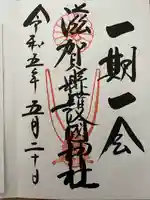 一期一会
滋賀縣護国神社
令和五年五月二十日